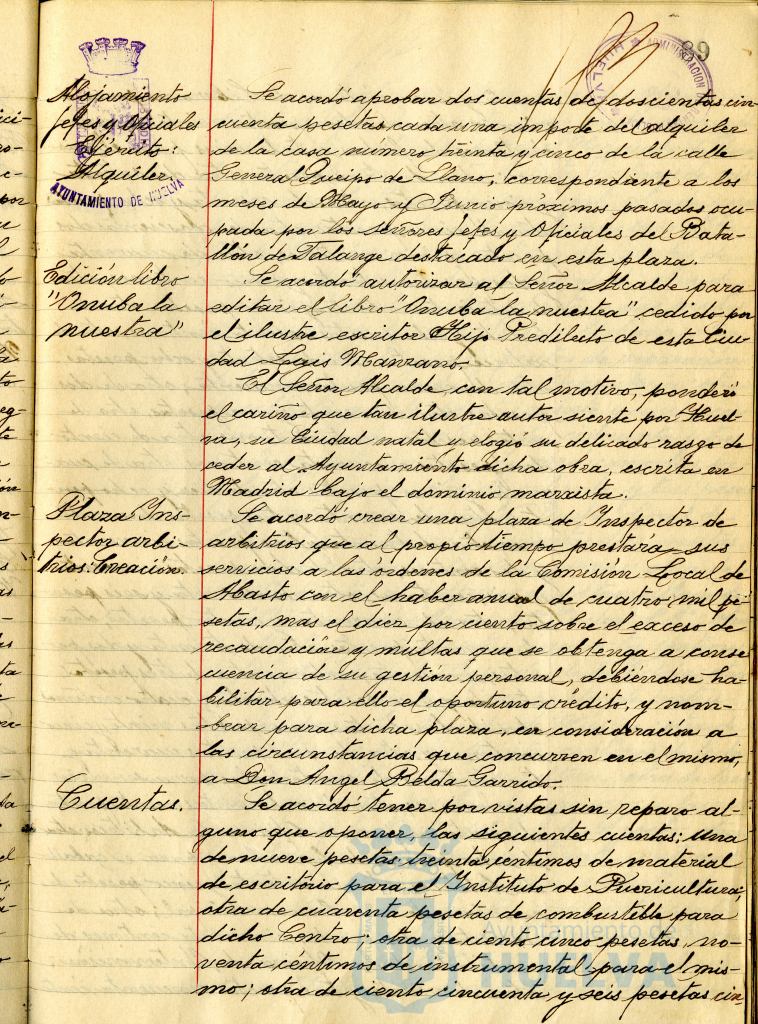 89
ADMINISTRACION
HUELVA
Alojamiento
Jefes y Oficiales
Ejército:
Alquiler.
AYUNTAMIENTO DE HUELVA
Se acordó aprobar dos cuentas de doscientas cin-
cuenta pesetas cada una importe del alquiler
de la casa número treinta y cinco de la calle
General Queipo de Llano, correspondiente a los
meses de Mayo y Junio próximos pasados ocu-
pada por los señores Jefes y Oficiales del Bata-
llón de Talange destacado en esta plaza.
Edición libro
"Onuba la
nuestra"
Se acordó autorizar al Señor Alcalde para
editar el libro "Onuba la nuestra" cedido por
el ilustre escritor Hijo Predilecto de esta Ciu-
dad Luis Manzano.
El Señor Alcalde, con tal motivo, ponderó
el cariño que tan ilustre autor siente por Huel-
va, su Ciudad natal y elogió su delicado rasgo de
ceder al Ayuntamiento dicha obra, escrita en
Madrid bajo el dominio marxista.
Plaza Ins-
pector arbi-
trios: Creación.
Se acordó crear una plaza de Inspector de
arbitrios que al propio tiempo prestará sus
servicios a las órdenes de la Comisión Local de
Abasto con el haber anual de cuatro mil pe-
setas, mas el diez por ciento sobre el exceso de
recaudación y multas que se obtenga a conse
cuencia de su gestión personal, debiéndose ha-
bilitar para ello el oportuno crédito, y nom-
brar para dicha plaza, en consideración a
las circunstancias que concurren en el mismo,
a Don Angel Belda Garrido.
Cuentas.
Se acordó tener por vistas sin reparo al-
guno que oponer, las siguientes cuentas: una
de nueve pesetas treinta céntimos de material
de escritorio para el Instituto de Puericultura;
otra de cuarenta pesetas de combustible para
dicho Centro; otra de ciento cinco pesetas, no-
venta céntimos de instrumental para el mis-
mo; otra de ciento cincuenta y seis pesetas cin
Ayuntamiento de
HUELVA